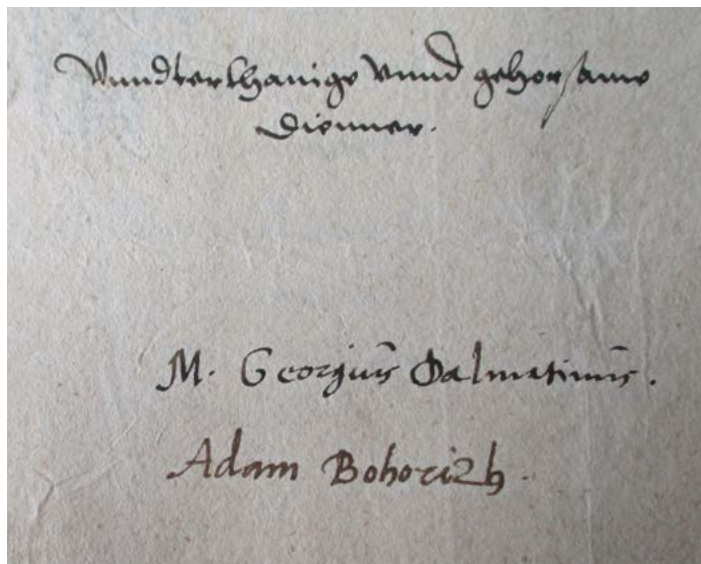 Vnndterthanige Vnnd gehorsame
Dienner.
M. Georgius Dalmatinus.
Adam Bohorizh.